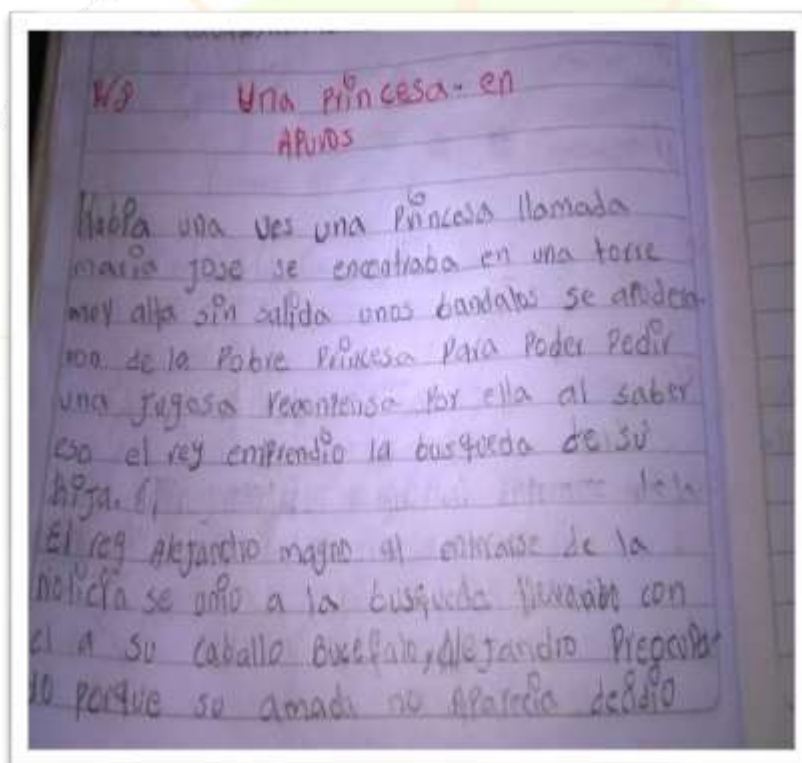 Una princesa - en
APUROS
Había una ves una Princesa llamada
maria jose se encontraba en una torre
muy alta sin salida unos bandalos se apodera-
ron de la Pobre Princesa Para Poder Pedir
una jugosa recontensa Por ella al saber
eso el rey emprendio la busqueda de su
hija.
El rey Alejandro magno al enterarse de la
noticia se unio a la busqueda llevando con
el a su caballo Bucefalo, Alejandro Preocupa-
do porque su amada no Aparecia decidio